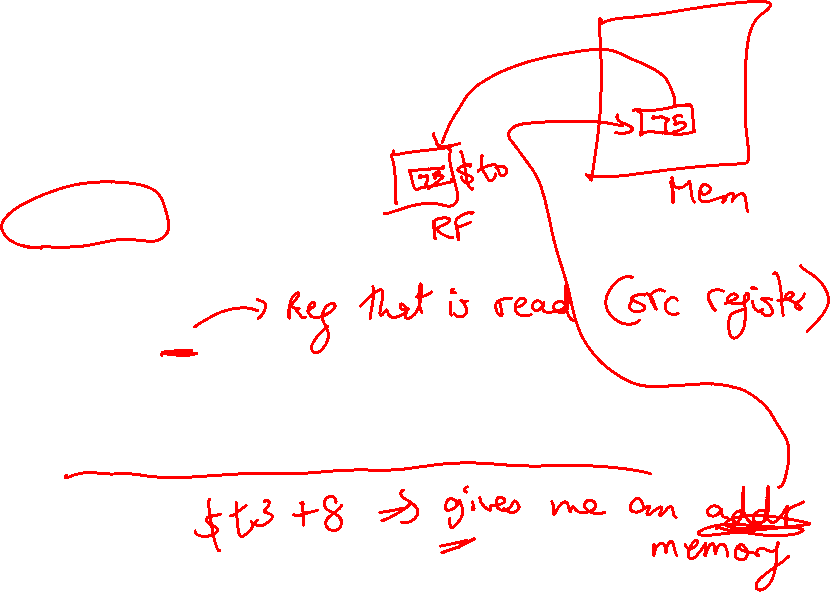 75
75 $t0
Mem
RF
Reg that is read (src register)
$t3 + 8 ⇒ gives me an addr
memory